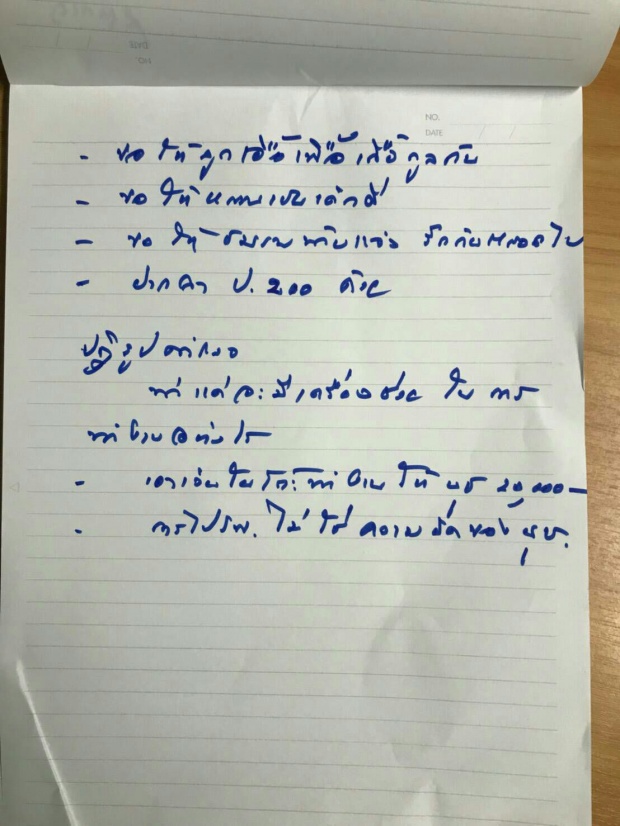 NO.
DATE
NO.
DATE
- ขอให้ลูกเอื้อเฟื้อเกื้อกูลกัน
- ขอให้หลานเป็นเด็กดี
- ขอให้ กับแจ๋ว รักกันตลอดไป
- ฝากดูแล ป. 200 ด้วย
ปฏิรูปตำรวจ
ตำแต่ละ มีเครื่องช่วย ในการ
ทำงานอย่างไร
- เอาเงินในโต๊ะทำงานให้ นุช 20,000-
- การไปรพ. ไม่ใช่ความผิดของ นุช.